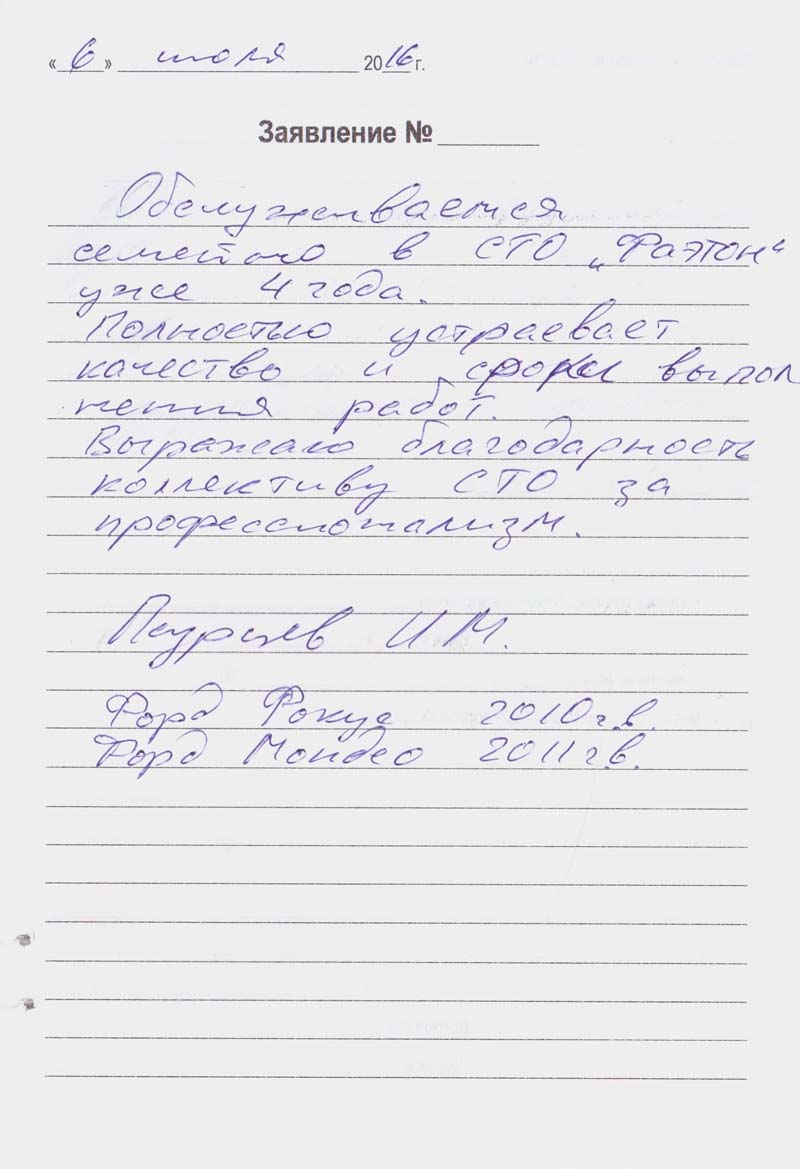 « 6 » июля 2016 г.
Заявление №
Обслуживаемся
семьёю в СТО „Фаэтон“
уже 4 года.
Полностью устраевает
качество и сроки выпол
нения работ.
Выражаю благодарность
коллективу СТО за
профессионализм.
И.М.
Форд Фокус 2010 г.в.
Форд Мондео 2011 г.в.